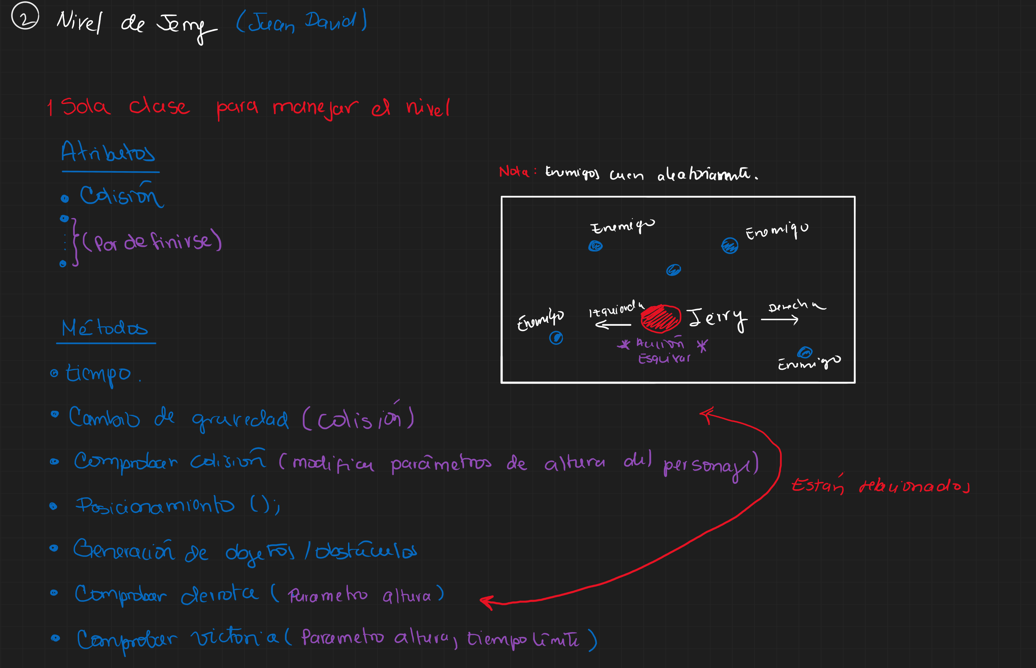 ② Nivel de Jerry (Juan David)
1 Sola clase para manejar el nivel
Atributos
• Colisión
• } (Por definirse)
Métodos
• tiempo.
• Cambio de gravedad (Colisión)
• Comprobar colisión (modifica parámetros de altura del personaje)
• Posicionamiento ();
• Generación de objetos / obstáculos
• Comprobar derrota (Parametro altura)
• Comprobar victoria (Parametro altura, tiempo límite)
Nota: Enemigos caen aleatoriamente.
Enemigo
Enemigo
Enemigo
Izquierda
Jerry
Derecha
* Acción *
Esquivar
Enemigo
Están relacionados